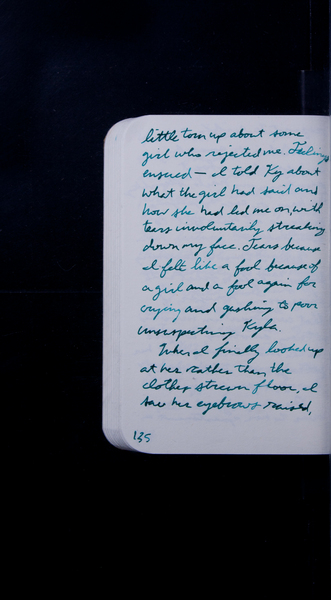 little torn up about some
girl who rejected me. Feelings
ensued — I told Ky about
what the girl had said and
how she had led me on, with
tears involuntarily streaking
down my face. Tears because
I felt like a fool because of
a girl and a fool again for
crying and gushing to poor
unsuspecting Kyla.
When I finally looked up
at her rather than the
clothes strewn floor, I
saw her eyebrows raised,
135